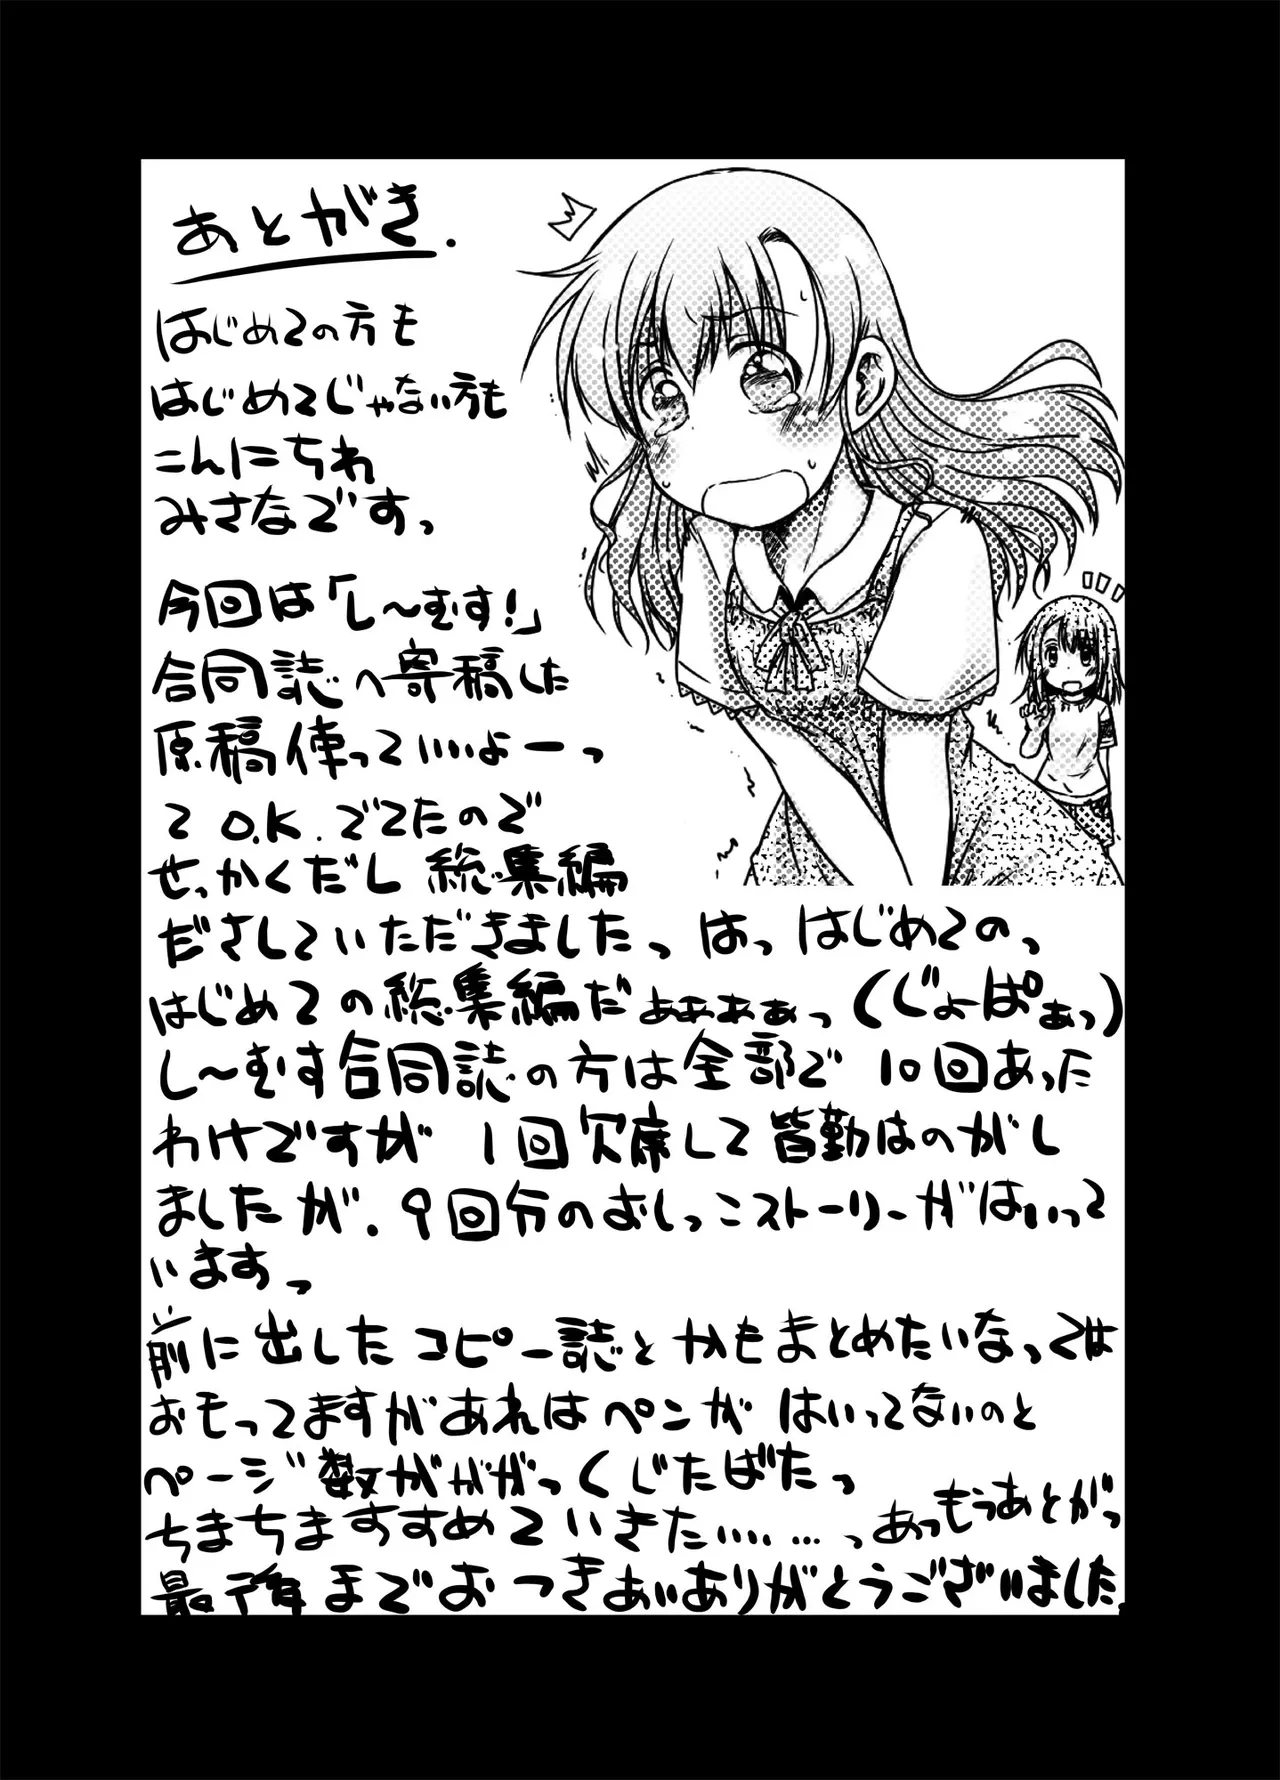 あとがき.
はじめての方も
はじめてじゃない方も
こんにちわ
みさなですっ
今回は「し〜むす!」
合同誌へ寄稿した
原稿使っていいよーっ
て O.K. でてたので
せっかくだし総集編
ださしていただきましたっ はっ はじめてのっ
はじめての総集編だぁぁぁぁぁっ(じょぱぁっ)
し〜むす合同誌の方は全部で10回あった
わけですが 1回欠席して皆勤はのがし
ましたが、9回分のおしっこストーリーがはいって
いますっ
前に出したコピー誌とかもまとめたいなっては
おもってますがあれはペンがはいってないのと
ページ数ががががっくじたばたっ
ちまちますすめていきた、、、、…っ あっもうあとがっ
最後までおつきあいありがとうございました。